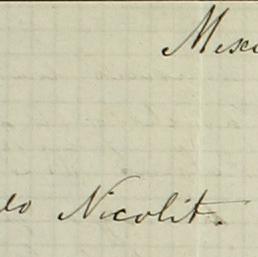 Mexi
eo Nicolit.